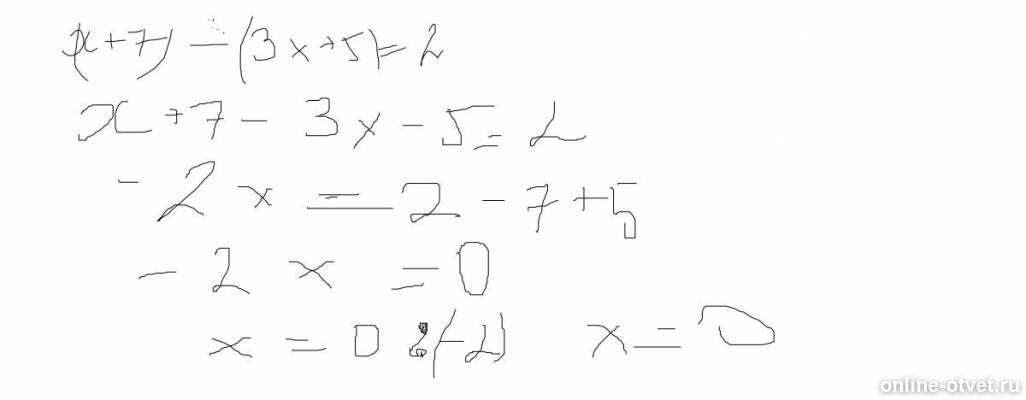 (x+7) - (3x+5)=2
x+7-3x-5=2
-2x=2-7+5
-2x=0
x=0:(-2) x=0
online-otvet.ru